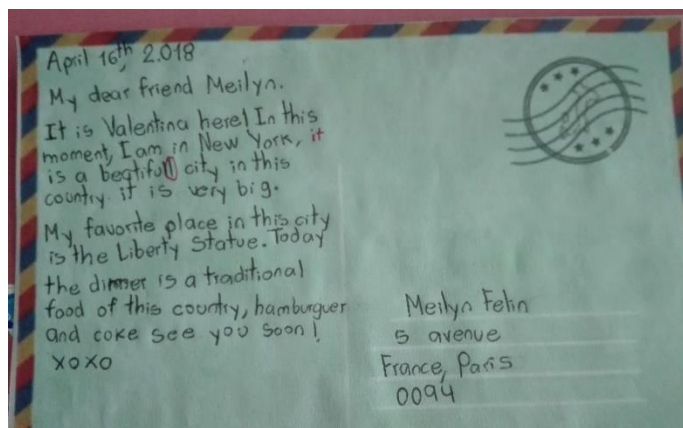 April 16th, 2.018
My dear friend Meilyn.
It is Valentina here! In this
moment, I am in New York, it
is a beqtiful city in this
country. it is very big.
My favorite place in this city
is the Liberty Statue. Today
the dinner is a traditional
food of this country, hamburguer
and coke see you soon!
xoxo
Meilyn Felin
5 avenue
France, Paris
0094